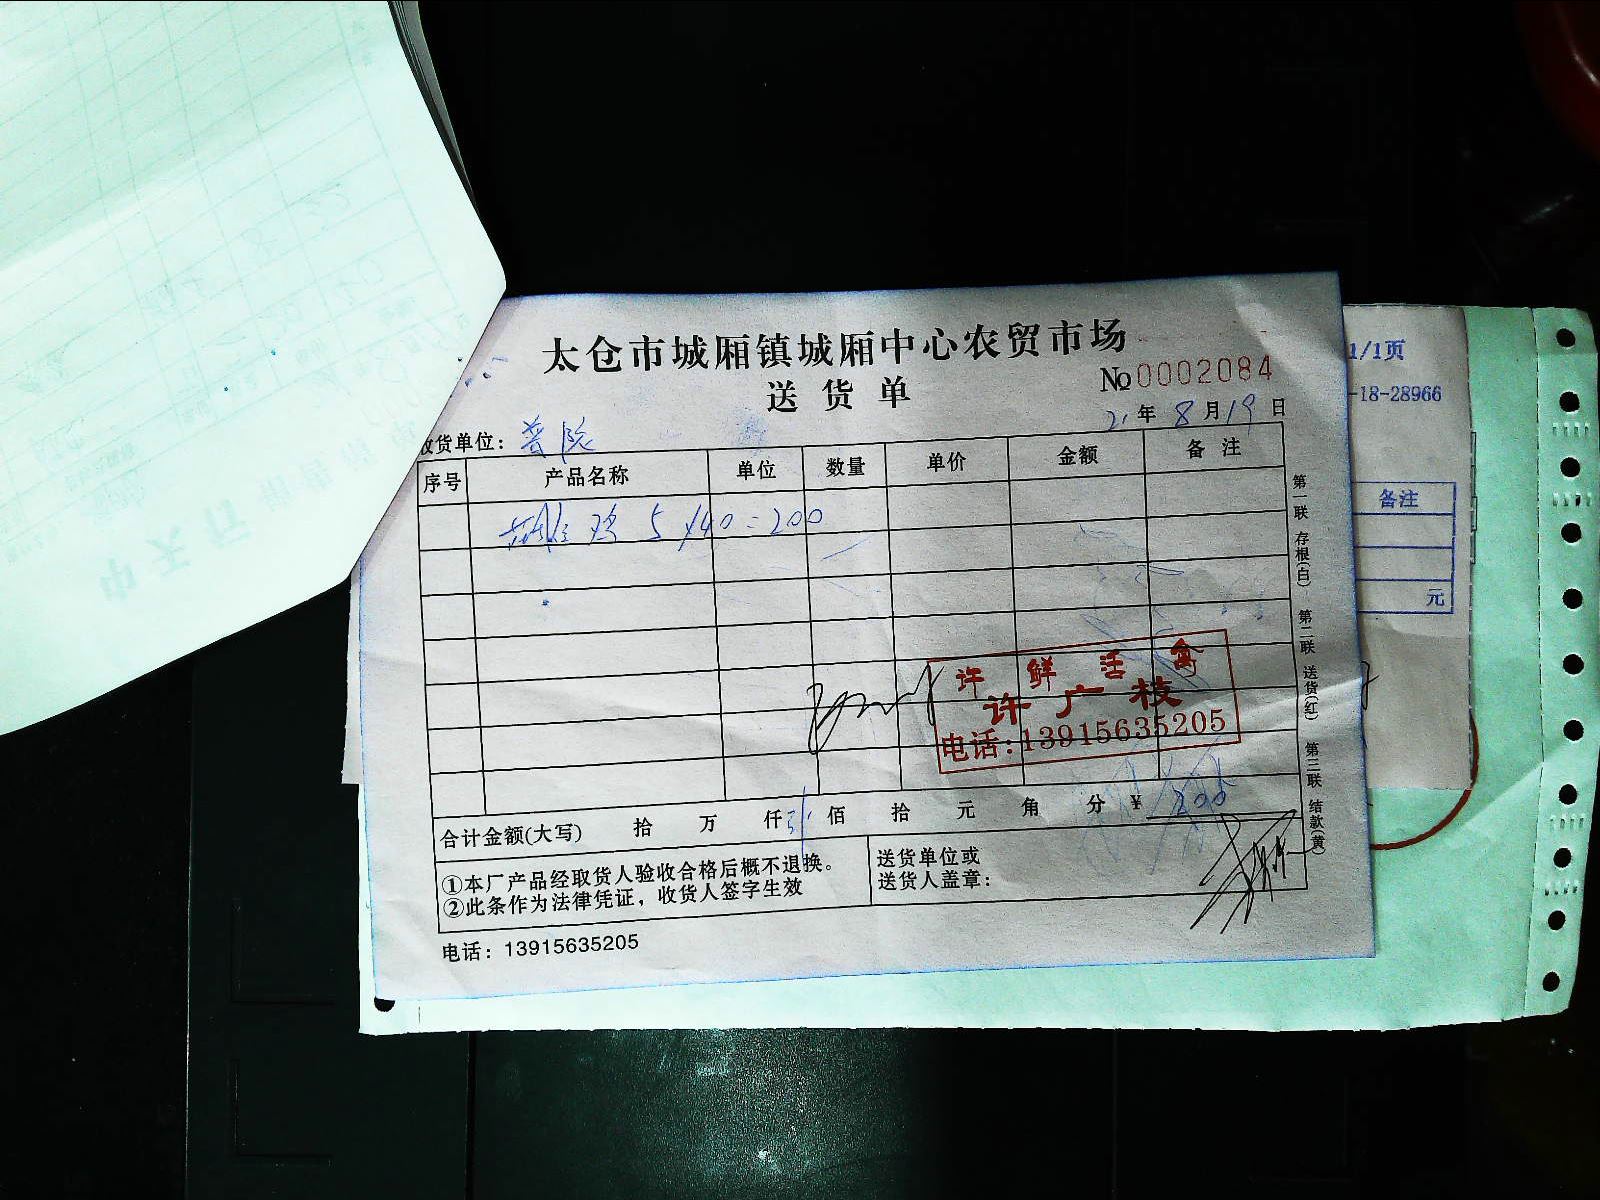 太仓市城厢镇城厢中心农贸市场
送货单
No 0002084
21年8月19日
收货单位:
序号 产品名称 单位 数量 单价 金额 备注
鸡 5×40=200
许鲜活禽
许广枝
电话:13915635205
合计金额(大写) 拾 万 仟 佰 拾 元 角 分 ¥ 200
①本厂产品经取货人验收合格后概不退换。
②此条作为法律凭证，收货人签字生效
送货单位或
送货人盖章:
电话: 13915635205
第一联 存根(白) 第二联 送货(红) 第三联 结款(黄)
1/1页
-18-28966
备注
元